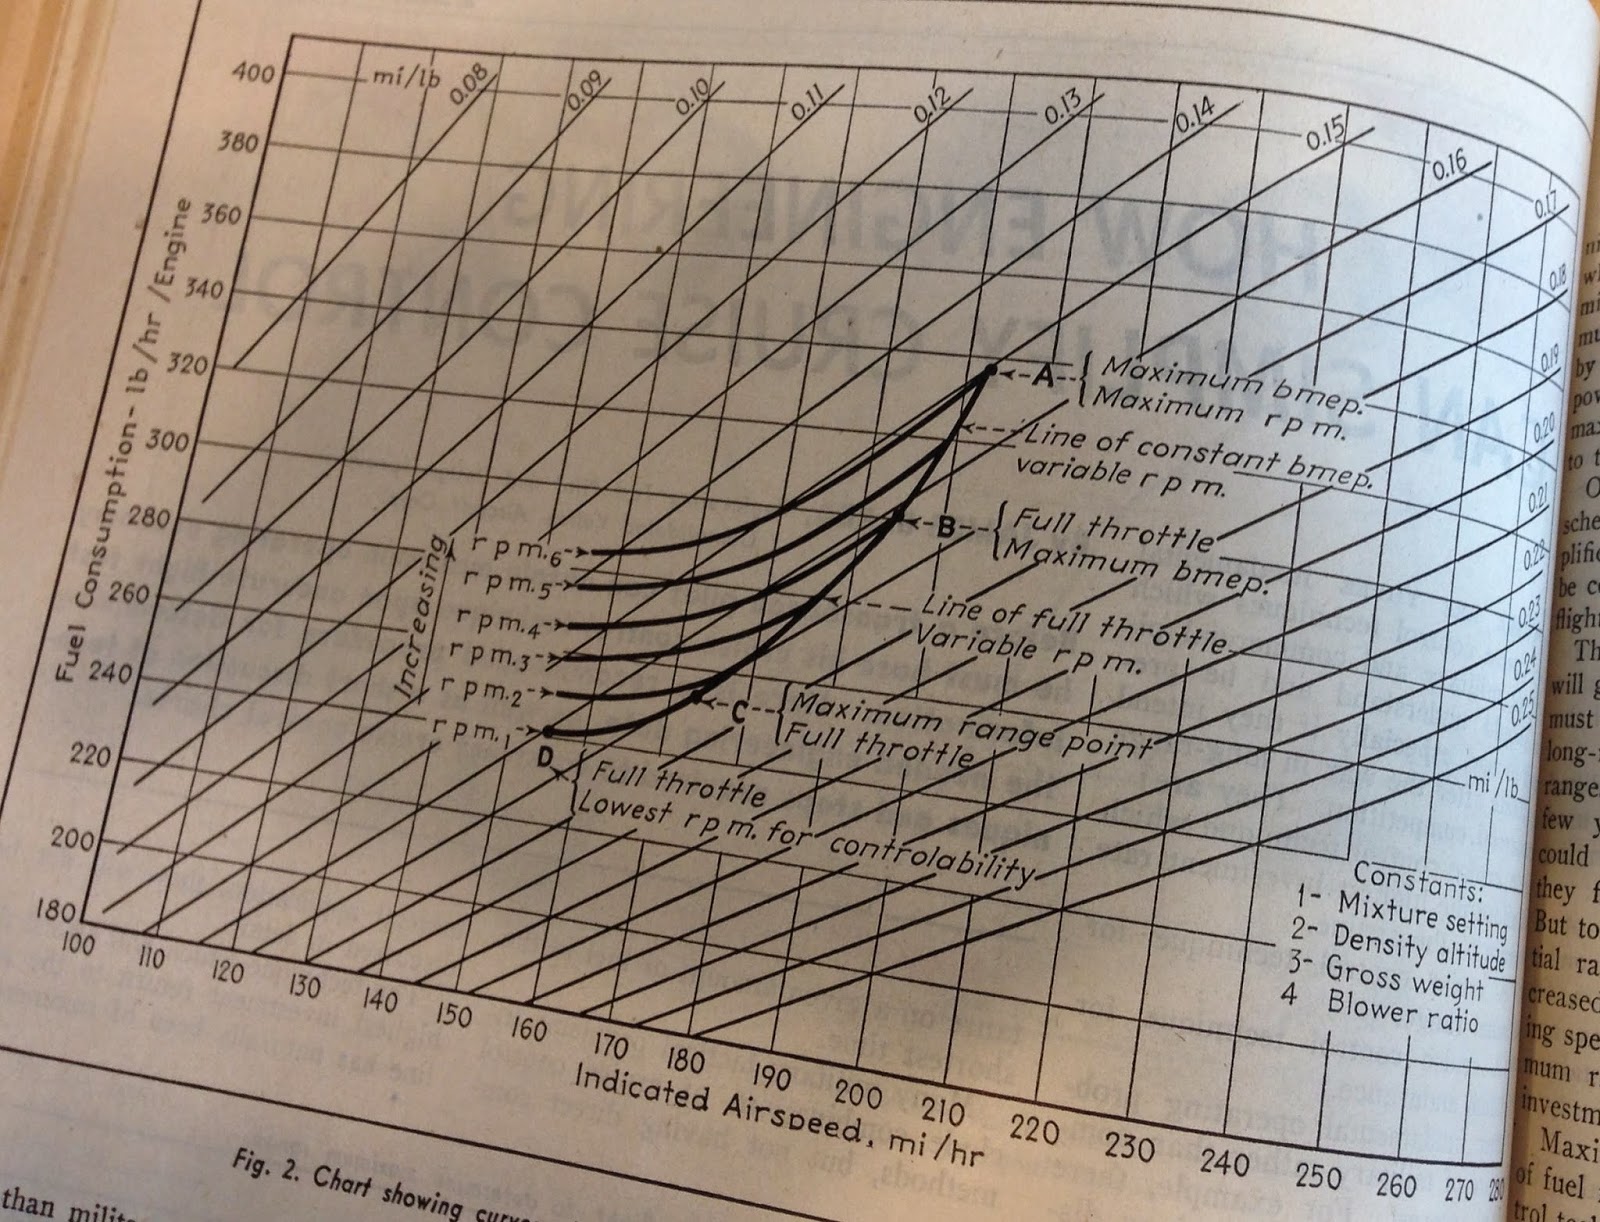 400
380
360
340
320
300
280
260
240
220
200
180
Fuel Consumption - lb/hr/Engine
mi/lb
0.08
0.09
0.10
0.11
0.12
0.13
0.14
0.15
0.16
0.17
0.18
0.19
0.20
0.21
0.22
0.23
0.24
0.25
mi/lb
A
Maximum bmep.
Maximum rpm.
Line of constant bmep.
variable rpm.
B
Full throttle
Maximum bmep.
Line of full throttle
Variable rpm.
C
Maximum range point
Full throttle
D
Full throttle
Lowest rpm. for controlability
Increasing
rpm.6
rpm.5
rpm.4
rpm.3
rpm.2
rpm.1
Constants:
1- Mixture setting
2- Density altitude
3- Gross weight
4 Blower ratio
100 110 120 130 140 150 160 170 180 190 200 210 220 230 240 250 260 270 280
Indicated Airspeed, mi/hr
Fig. 2. Chart showing
than
to t
be c
fligh
Th
will g
must
long-
range
few y
could
they f
But to
tial ra
creased
ing spe
mum r
investm
Maxi
of fuel